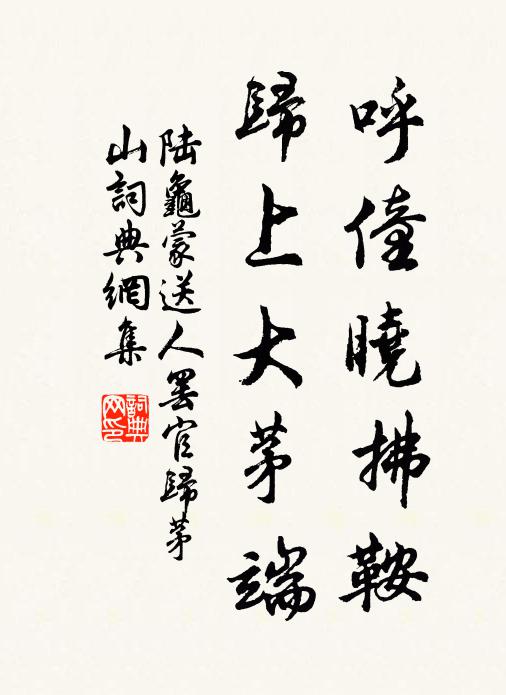 呼僮曉拂鞍
歸上大茅端
陸龜蒙送人罢官歸茅
山詞典網集
詞典
网印